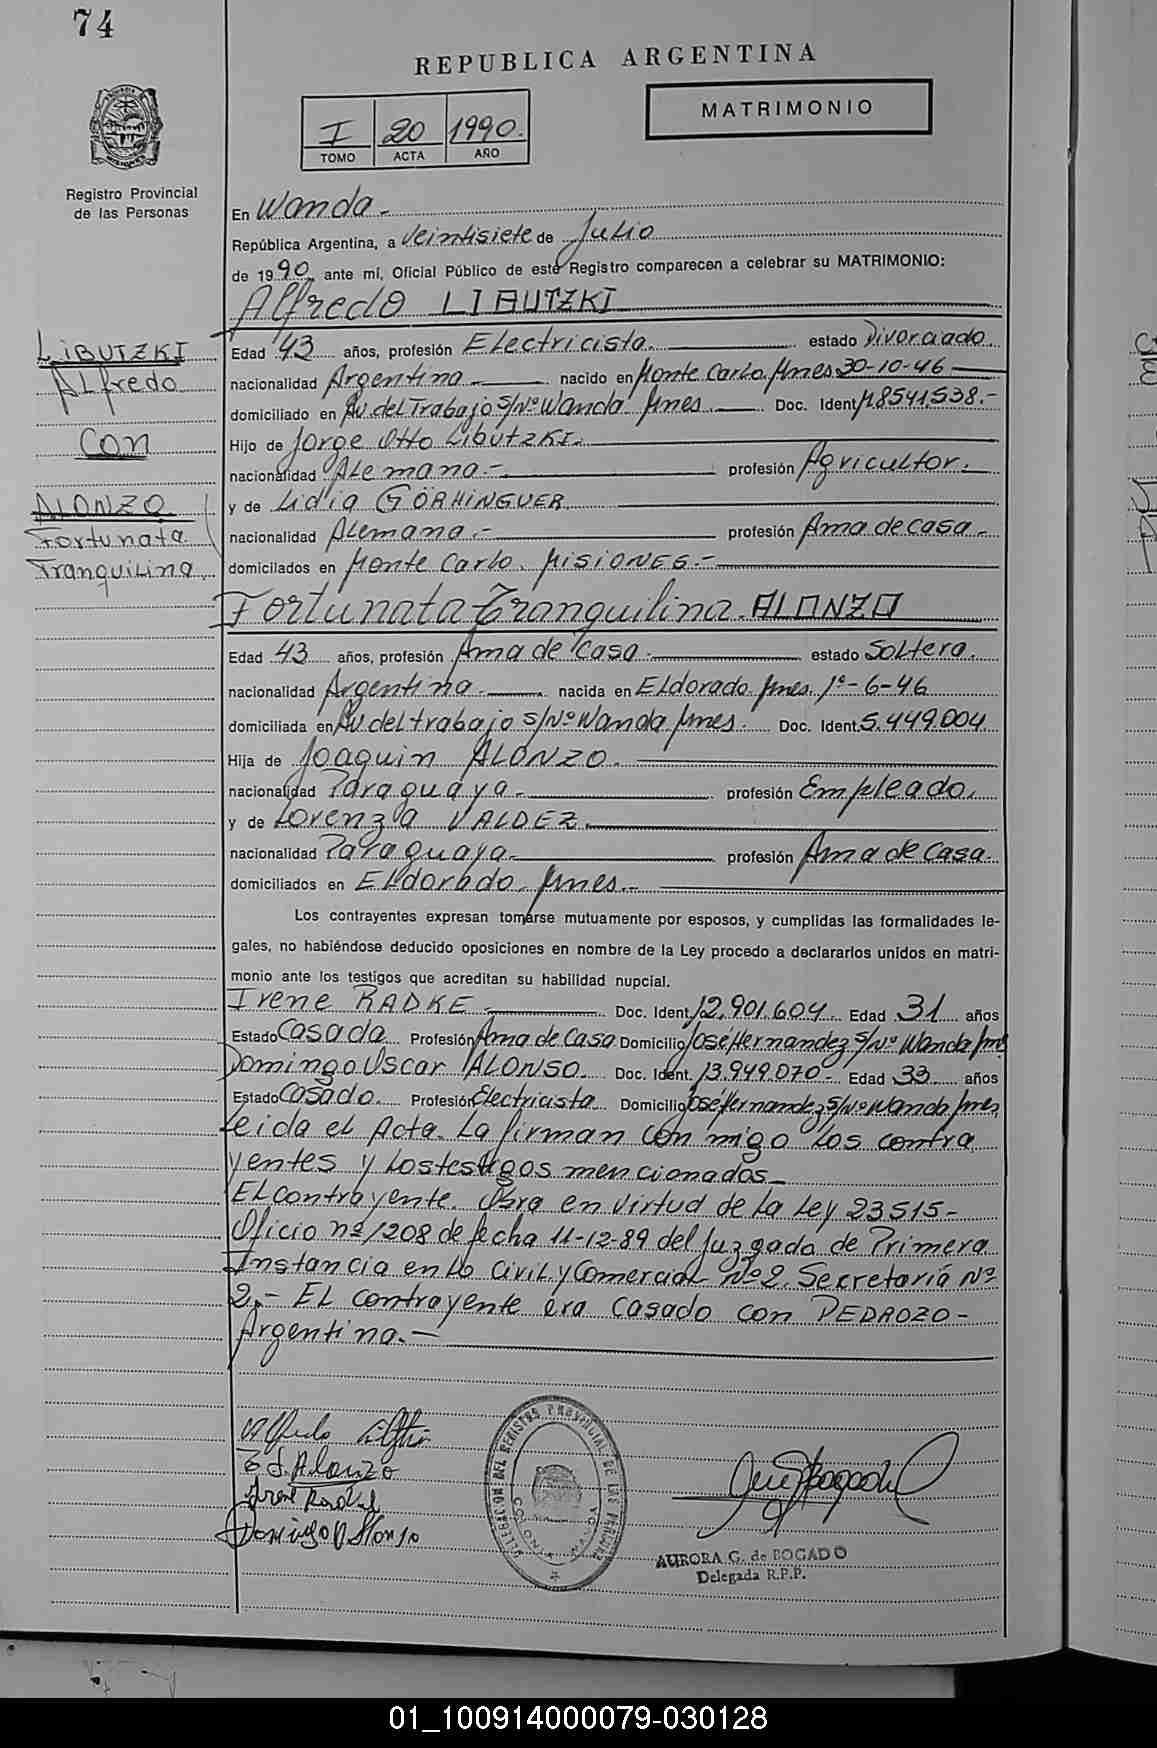 74
REPUBLICA ARGENTINA
MATRIMONIO
I 20 1990.
TOMO ACTA AÑO
Registro Provincial
de las Personas
En Wanda.-
República Argentina, a veintisiete de Julio
de 1990, ante mí, Oficial Público de este Registro comparecen a celebrar su MATRIMONIO:
Alfredo LIBUTZKI
LIBUTZKI
Alfredo
Con
ALONZO
Fortunata
Tranquilina.
Edad 43 años, profesión Electricista. estado Divorciado.
nacionalidad Argentina nacido en Monte Carlo. Mnes 30-10-46
domiciliado en Av. del Trabajo S/Nº Wanda Mnes. Doc. Ident. M8541.538.-
Hijo de Jorge Otto Libutzki.
nacionalidad Alemana.- profesión Agricultor.
y de Lidia GÖRHINGUER
nacionalidad Alemana.- profesión Ama de casa.-
domicilados en Monte Carlo. MISIONES.-
Fortunata Tranquilina. ALONZO
Edad 43 años, profesión Ama de Casa. estado Soltera.
nacionalidad Argentina. nacida en Eldorado. Mnes. 1º-6-46
domiciliada en Av. del trabajo S/Nº Wanda Mnes. Doc. Ident. 5.449.004.
Hija de Joaquin ALONZO.
nacionalidad Paraguaya.- profesión Empleado.
y de Lorenza VALDEZ.
nacionalidad Paraguaya.- profesión Ama de Casa.
domiciliados en Eldorado. Mnes.-
Los contrayentes expresan tomarse mutuamente por esposos, y cumplidas las formalidades le-
gales, no habiéndose deducido oposiciones en nombre de la Ley procedo a declararlos unidos en matri-
monio ante los testigos que acreditan su habilidad nupcial.
Irene RADKE.- Doc. Ident. 12.901.604. Edad 31 años
Estado Casada Profesión Ama de Casa Domicilio José Hernandez S/Nº Wanda Mnes
Domingo Oscar ALONSO. Doc. Ident. 13.949.070- Edad 33 años
Estado Casado. Profesión Electricista Domicilio José Hernandez S/Nº Wanda Mnes
Leida el Acta. La firman con migo los contra
yentes y los testigos mencionados-
El contrayente. Obra en virtud de la Ley 23515-
Oficio nº 1208 de fecha 11-12-89 del Juzgado de Primera
Instancia en lo Civil y Comercial Nº 2. Secretaría Nº
2.- El contrayente era casado con PEDROZO-
Argentina.-
T. J. Alonzo
Irene Radke
Domingo O Alonso
DELEGACION DEL REGISTRO PROVINCIAL DE LAS PERSONAS
COLONIA WANDA
AURORA G. de BOGADO
Delegada R.P.P.
01_100914000079-030128